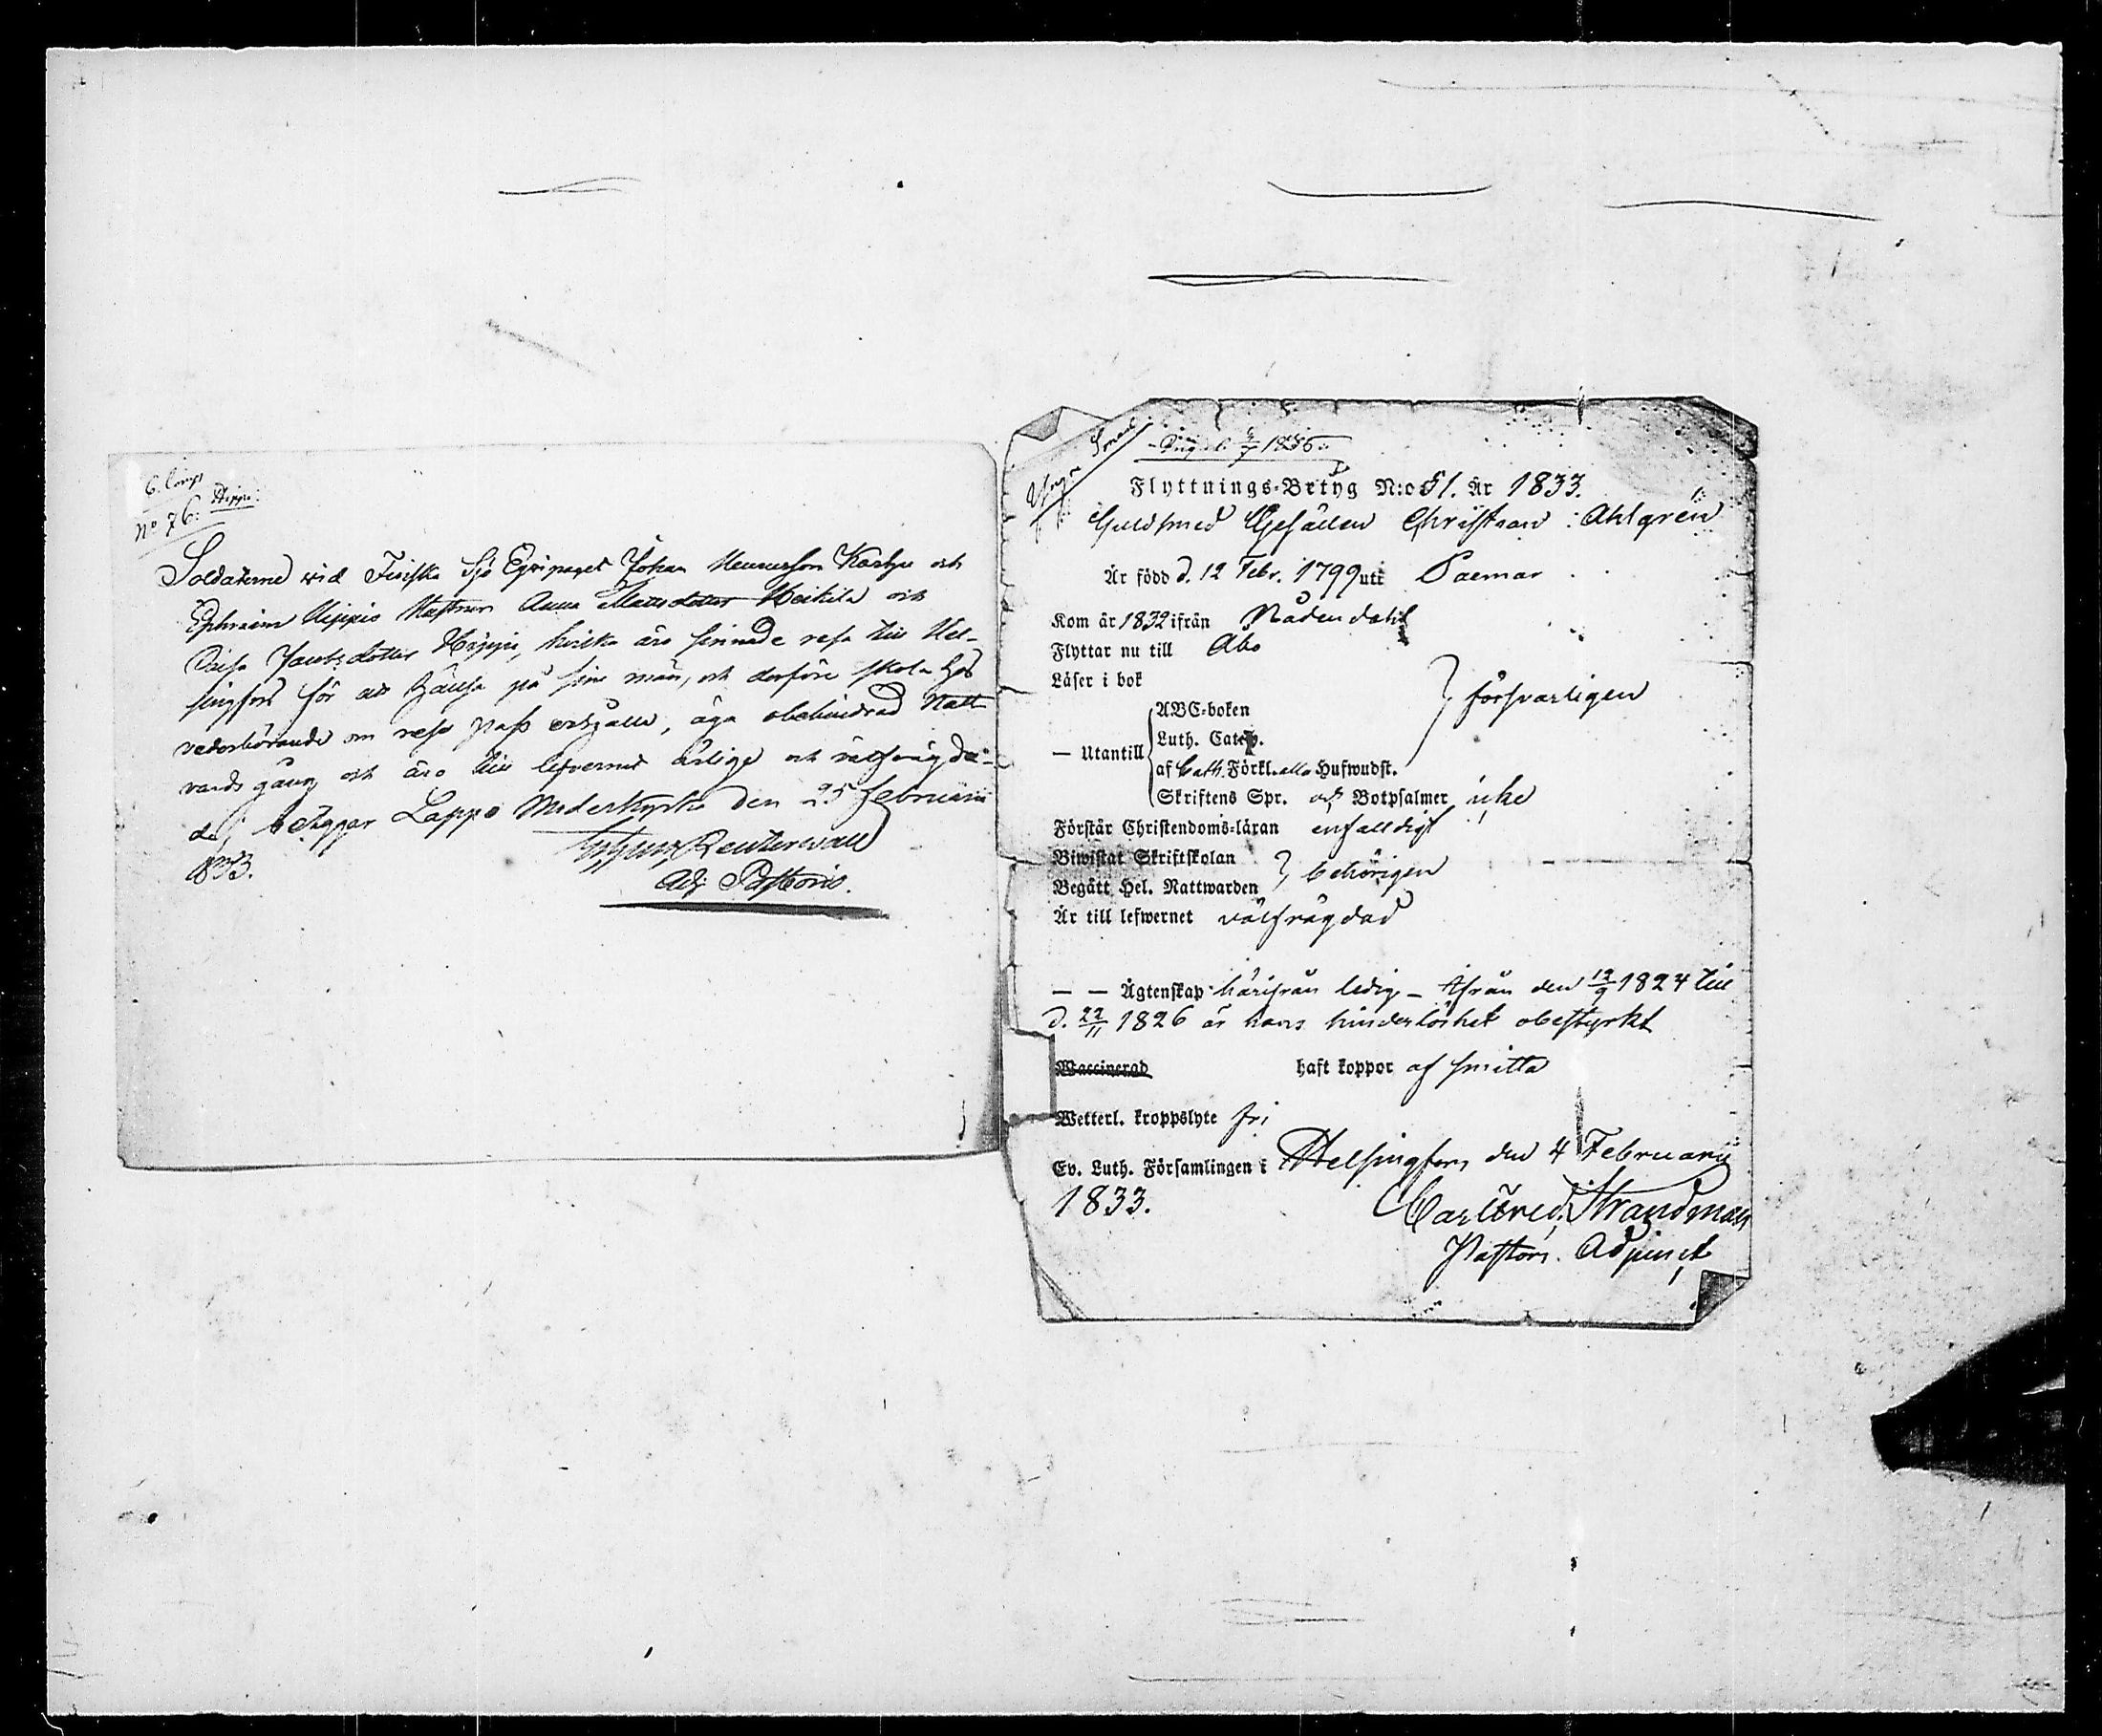 6. Comp
No 76: Hippi:
Soldaterne vid Finska Sjö Equipaget Johan Henricsson Karhu och
Ephraim Hippis Hustrur Anna Matts dotter Heikilä och
Caisa Jacobsdotter Hippi, hvilka äro sinnade resa till Hel-
singfors för att hälsa på sine män, och derföre skola hos
vederbörande om rese Pass anhålla, äga obehindrad Natt-
vards gång och äro till lefvernet ärlige och välfrägda-
de; betygar Lappo Moderkyrka den 25 Februarii
1833.
Reuterwall
Adj. Pastoris.
Flyttnings-Betyg N:o 51. År 1833.
Guldsmeds Gesällen Christian Ahlgrén
Är född d. 12 Febr. 1799 uti Paemar
Kom år 1832 ifrån Nådendahl
Flyttar nu till Åbo
Läser i bok
— Utantill
ABC-boken
Luth. Catech.
af Cath. Förkl. alla Hufwudst.
försvarligen
Skriftens Spr. och Botpsalmer icke
Förstår Christendoms-läran enfaldigt
Biwistat Skriftskolan
Begått Hel. Nattwarden
behörigen
Är till lefwernet välfrägdad
— — Ägtenskap härifrån ledig - Ifrån den 12/9 1824 till
d. 22/11 1826 är hans hinderlöshet obestyrkt
Waccinerad haft koppor af smitta
Wetterl. kroppslyte fri
Ev. Luth. Församlingen i Helsingfors den 4 February
1833.
Carl Fred. Strandman
Pastors. Adjunct